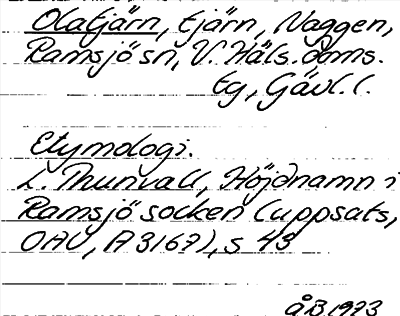 Olatjärn, tjärn, Naggen,
Ramsjö sn, V. Häls. doms.
tg, Gävl. l.
Etymologi.
L. Thunvall, Höjdnamn i
Ramsjö socken (uppsats,
OAU, A 3167), s 43
ÅB 1973